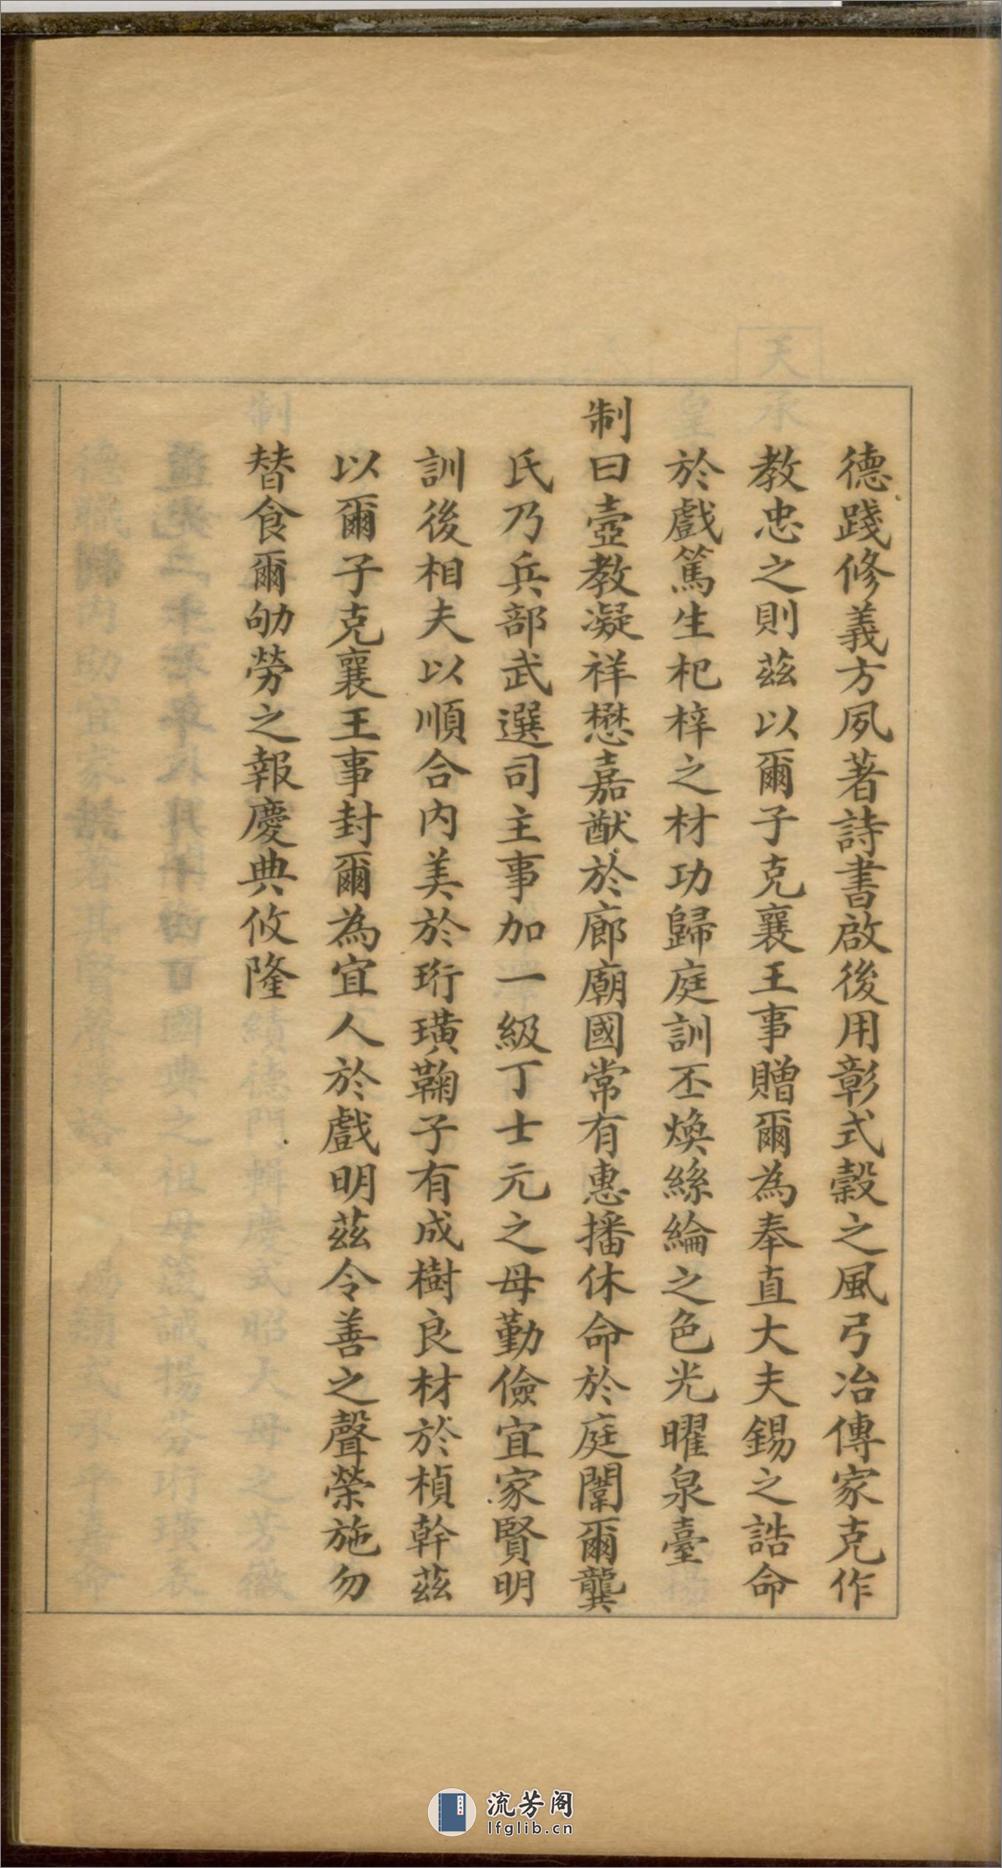 德踐修義方夙著詩書啟後用彰式榖之風弓冶傳家克作
教忠之則茲以爾子克襄王事贈爾為奉直大夫錫之誥命
於戲篤生杞梓之材功歸庭訓丕煥絲綸之色光曜泉臺
制曰壼教凝祥懋嘉猷於廊廟國常有惠播休命於庭闈爾龔
氏乃兵部武選司主事加一級丁士元之母勤儉宜家賢明
訓後相夫以順合內美於珩璜鞠子有成樹良材於楨幹茲
以爾子克襄王事封爾為宜人於戲明茲令善之聲榮施勿
替食爾劬勞之報慶典攸隆
流芳阁
lfglib.cn